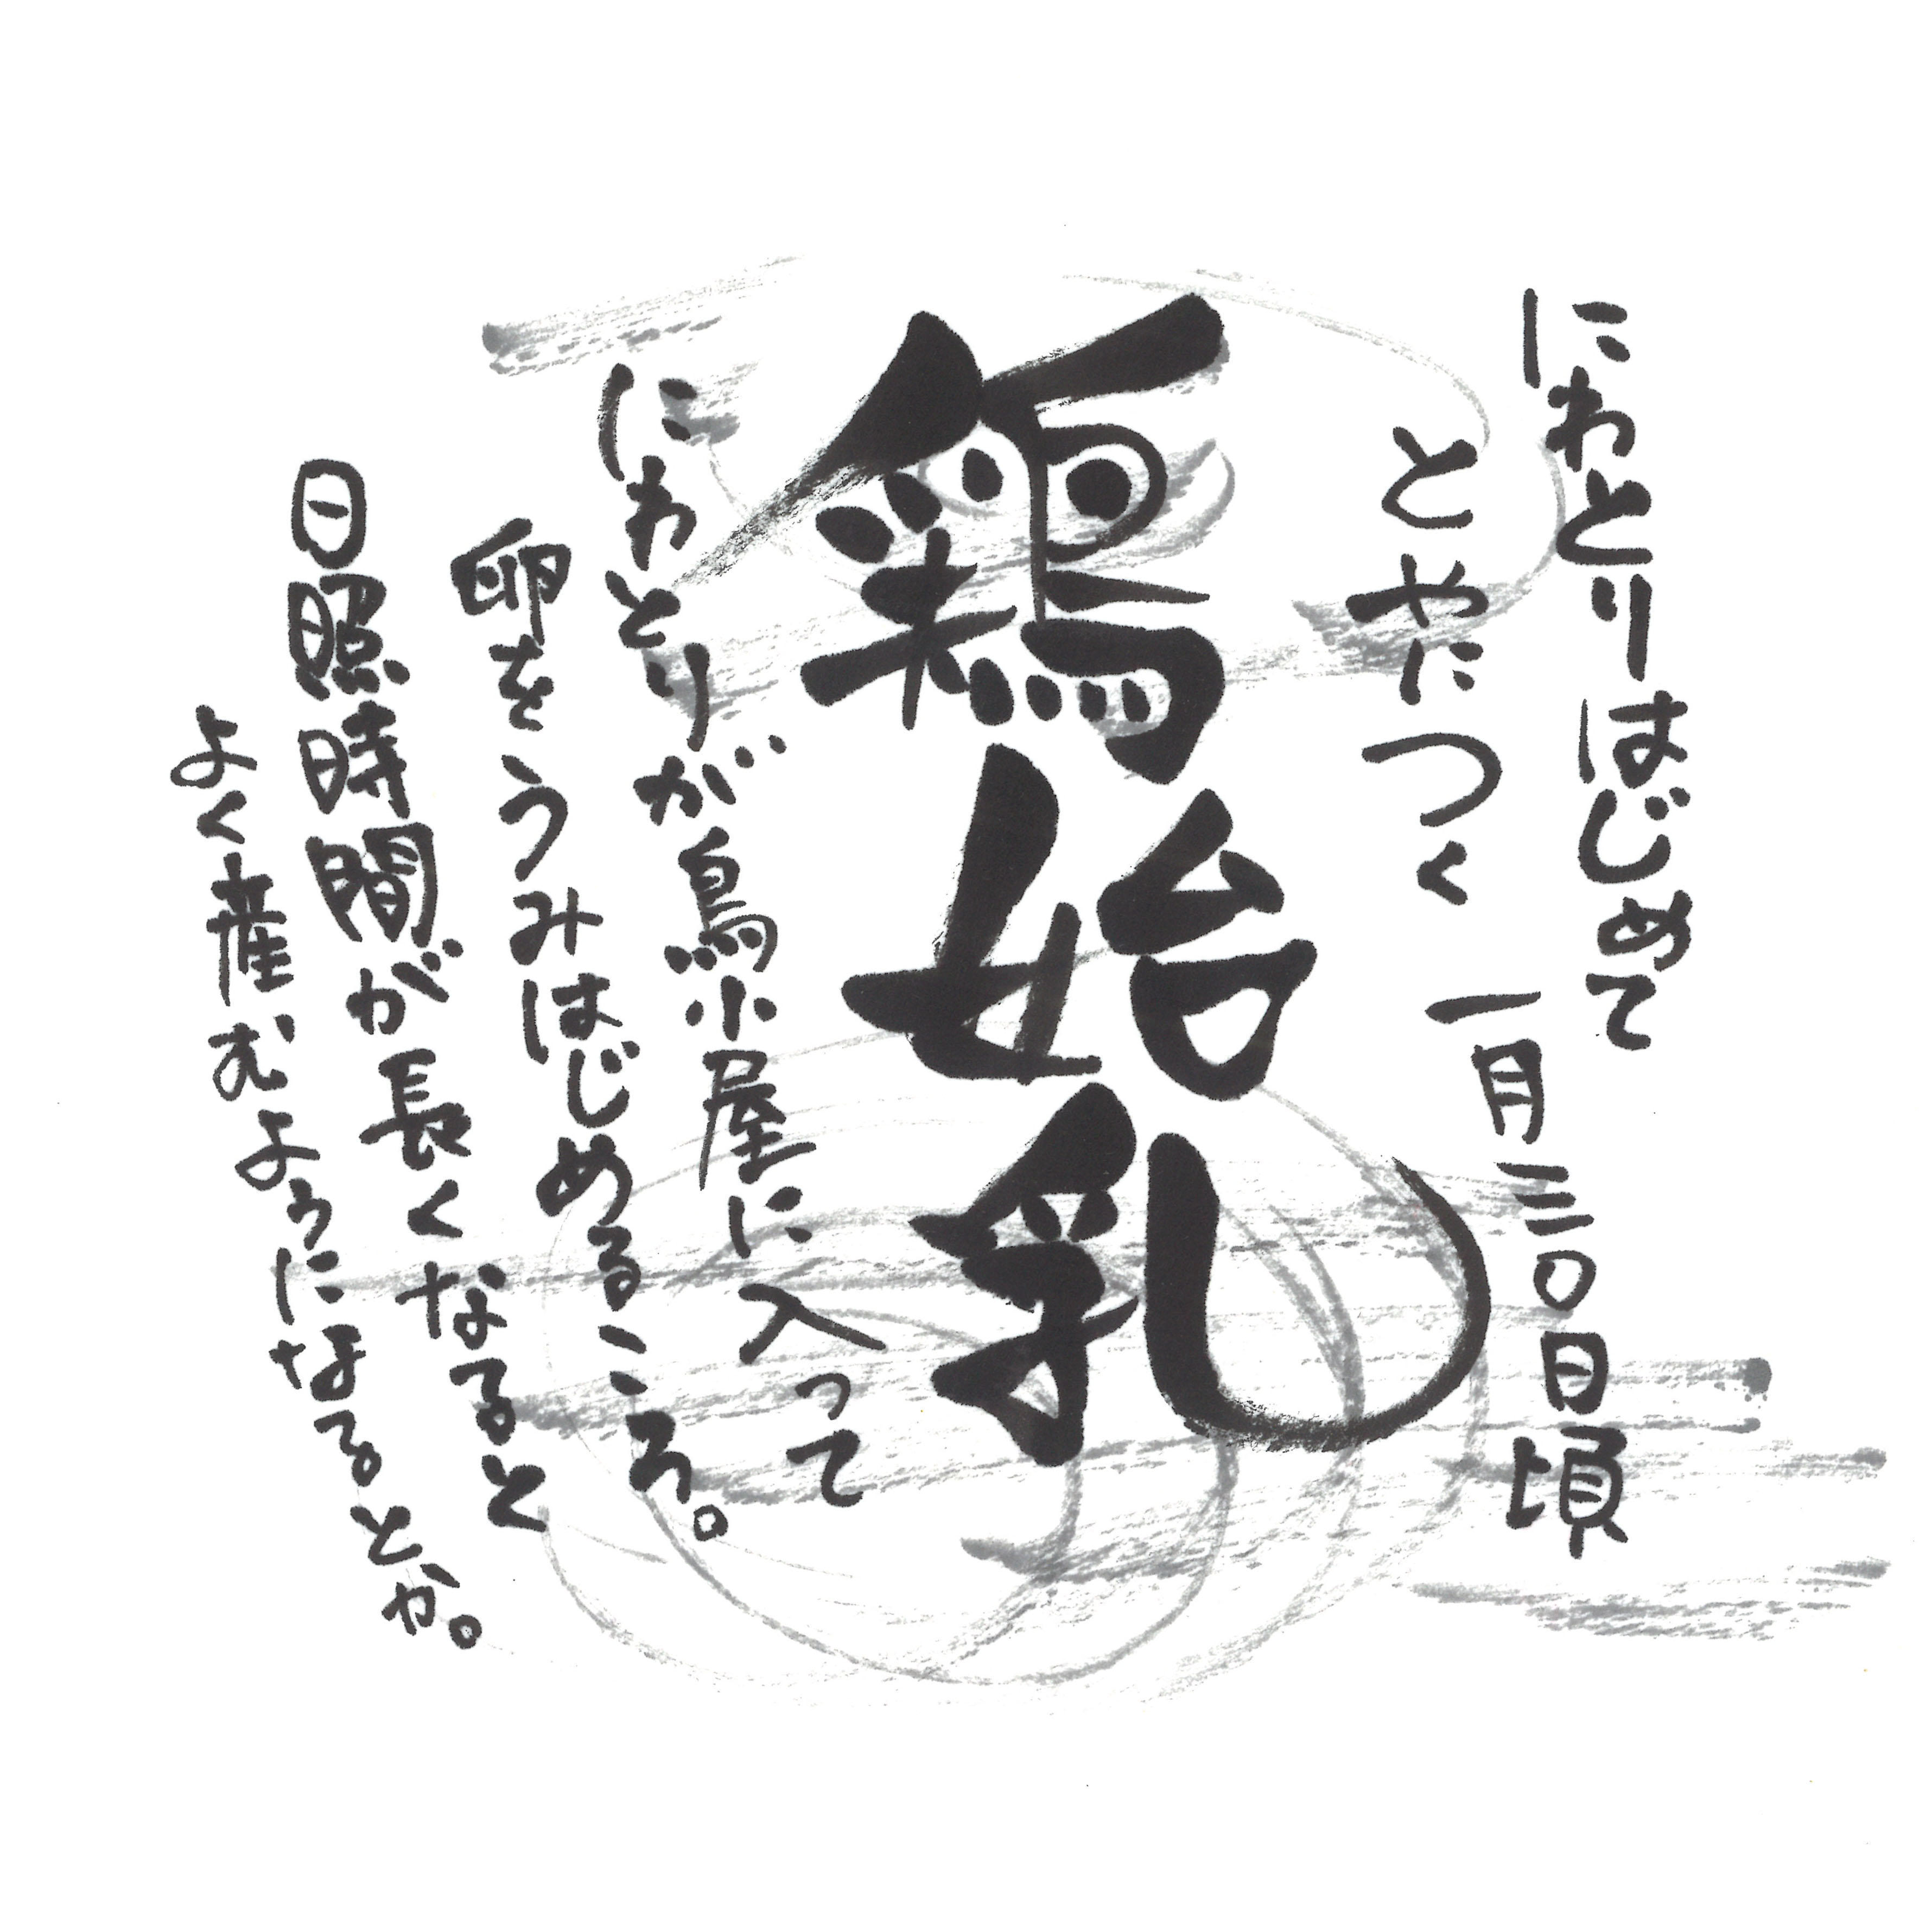 にわとりはじめて
とやにつく
一月三〇日頃
鶏始乳
にわとりが鳥小屋に入って
卵をうみはじめるころ。
日照時間が長くなると
よく産むようになるとか。